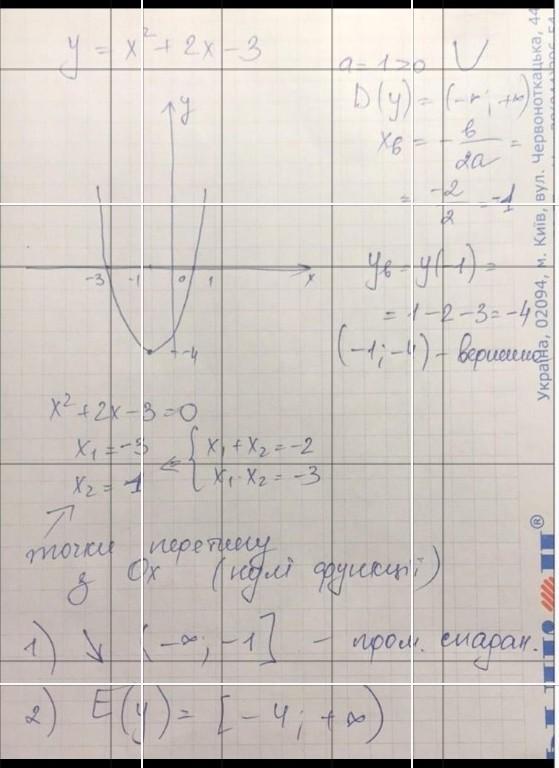 y = x² + 2x - 3
a = 1 > 0
D(y) = (-∞; +∞)
xв = -в/2a =
= -2/2 = -1
yв = y(-1) =
= 1 - 2 - 3 = -4
(-1; -4) - вершина
y
-3 -1 0 1 x
-4
x² + 2x - 3 = 0
x₁ = -3 ⇐ { x₁ + x₂ = -2
x₂ = 1 x₁ · x₂ = -3
точки перетину
з Ox (нулі функції)
1) ↘ (-∞; -1] - пром. спадан.
2) E(y) = [-4; +∞)
Україна, 02094, м. Київ, вул. Червоноткацька, 44
®